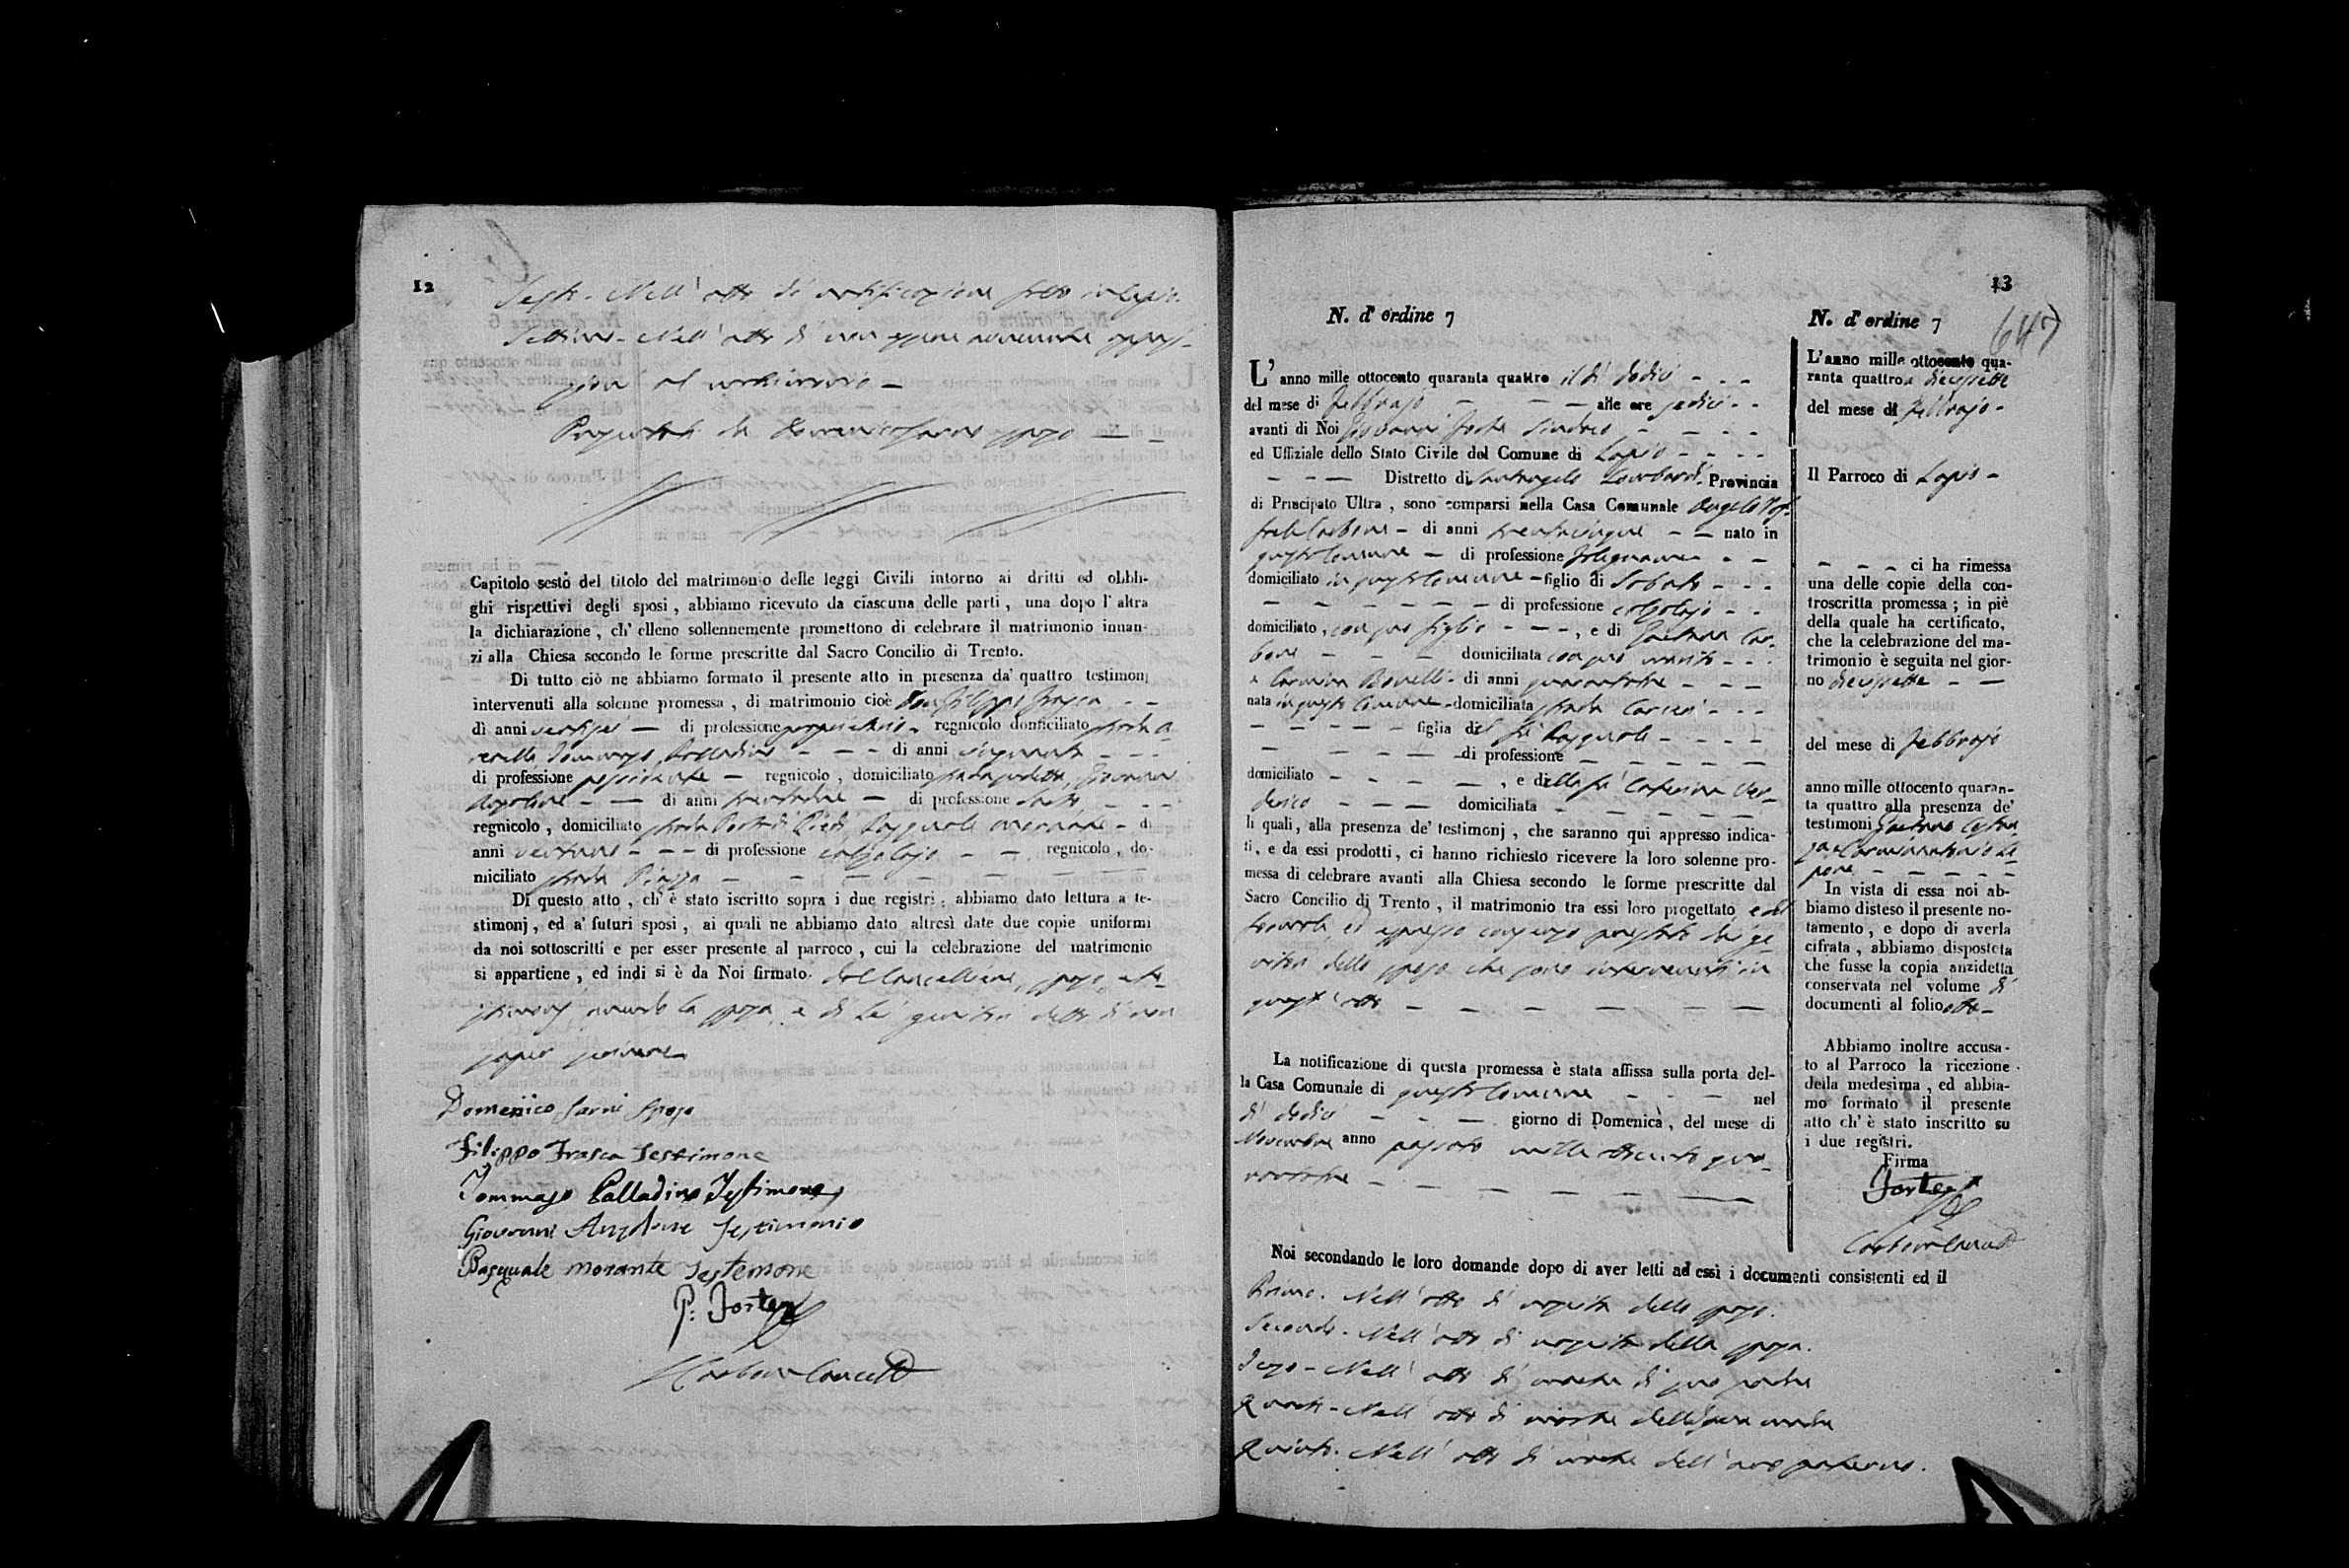 12
Sesto. Nell' atto di notificazione fatto in Lapio.
Settimo. Nell' atto di non essere avvenuta oppos-
izione al matrimonio —
Domenico Sarni sposo — —
Capitolo sesto del titolo del matrimonio delle leggi Civili intorno ai dritti ed obbli-
ghi rispettivi degli sposi, abbiamo ricevuto da ciascuna delle parti, una dopo l'altra
la dichiarazione, ch' elleno sollennemente promettono di celebrare il matrimonio innan-
zi alla Chiesa secondo le forme prescritte dal Sacro Concilio di Trento.
Di tutto ciò ne abbiamo formato il presente atto in presenza da' quattro testimonj
intervenuti alla solenne promessa, di matrimonio cioè Don Filippo Frasca - -
di anni ventisei — di professione proprietario - regnicolo domiciliato strada
Tommaso Palladino - - - di anni cinquanta - - -
di professione possidente — regnicolo, domiciliato strada sudetta, Giovanni
- — di anni trentadue — di professione Sarto - - -
regnicolo, domiciliato strada Porta di Piedi, Pasquale Morante - di
anni ventuno - - - di professione calzolajo - — regnicolo, do-
miciliato strada Piazza — — — — — — —
Di questo atto, ch' è stato iscritto sopra i due registri, abbiamo dato lettura a te-
stimonj, ed a' futuri sposi, ai quali ne abbiamo dato altresì date due copie uniformi
da noi sottoscritti e per esser presente al parroco, cui la celebrazione del matrimonio
si appartiene, ed indi si è da Noi firmato. dal Cancelliere, sposo, e te-
stimonj avendo la sposa e di lei genitori detto di non
saper scrivere
Domenico Sarni Sposo
Filippo Frasca Testimone
Tommaso Palladino Testimone
Giovanni Anzalone Testimonio
Pasquale Morante Testemone
P: Forte
Carbone Cancell
13
647
N. d' ordine 7
L' anno mille ottocento quaranta quattro il dì dodici - - -
del mese di Febbrajo — — — alle ore sedici - -
avanti di Noi Giovanni Forte Sindaco - - - -
ed Uffiziale dello Stato Civile del Comune di Lapio - - - -
- - — Distretto di Santangelo Lombardi. Provincia
di Principato Ultra, sono comparsi nella Casa Comunale Angelo
Carbone - di anni trentacinque - — nato in
questo Comune — di professione Falegname - -
domiciliato in questo Comune - figlio di Sabato - - -
— - - - - — di professione calzolajo - -
domiciliato, con suo figlio - - -, e di Gaetana Car-
bone - - — domiciliata con suo marito - - -
e Carmina Bonelli - di anni quarantatre - - —
nata in questo Comune - domiciliata strada Carrieri - - -
— - - - - figlia del fù Pasquale - - - -
— - - — di professione — — — — —
domiciliato — - - —, e della fù Caterina Cle-
- - — domiciliata — — — — —
li quali, alla presenza de' testimonj, che saranno qui appresso indica-
ti, e da essi prodotti, ci hanno richiesto ricevere la loro solenne pro-
messa di celebrare avanti alla Chiesa secondo le forme prescritte dal
Sacro Concilio di Trento, il matrimonio tra essi loro progettato, e col
formale, ed espresso consenso prestato dai ge-
nitori dello sposo che sono intervenuti in
quest' atto — — — — — —
La notificazione di questa promessa è stata affissa sulla porta del-
la Casa Comunale di questo Comune - - — nel
dì dodici - - — giorno di Domenica, del mese di
Novembre anno passato mille ottocento qua-
rantatre — — — — — —
Noi secondando le loro domande dopo di aver letti ad essi i documenti consistenti ed il
Primo. Nell' atto di nascita dello sposo.
Secondo. Nell' atto di nascita della sposa.
Terzo - Nell' atto di morte di suo padre
Quarto - Nell' atto di morte della sua madre
Quinto. Nell' atto di morte dell' avo paterno.
N. d' ordine 7
L'anno mille ottocento qua-
ranta quattro a diecissette
del mese di Febbrajo -
Il Parroco di Lapio -
- - - ci ha rimessa
una delle copie della con-
troscritta promessa; in piè
della quale ha certificato,
che la celebrazione del ma-
trimonio è seguita nel gior-
no diecissette - —
del mese di Febbrajo
anno mille ottocento quaran-
ta quattro alla presenza de'
testimoni Gaetano
- - - - -
In vista di essa noi ab-
biamo disteso il presente no-
tamento, e dopo di averla
cifrata, abbiamo disposteta
che fusse la copia anzidetta
conservata nel volume di
documenti al folio otto -
Abbiamo inoltre accusa-
to al Parroco la ricezione
della medesima, ed abbia-
mo formato il presente
atto ch' è stato inscritto su
i due registri.
Firma
Forte
Carbone Cancell